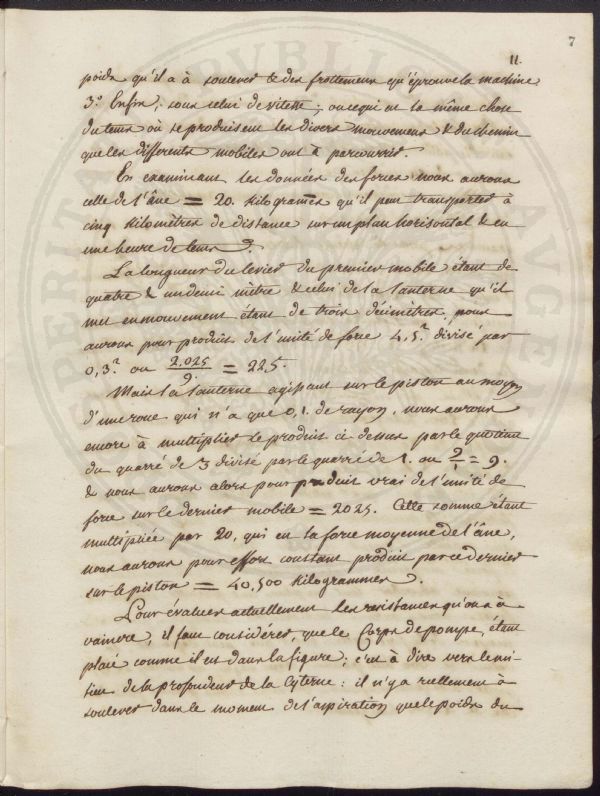 7
11.
poids qu'il a à soulever & des frottemens qu'éprouve la machine
3.° Enfin, sous celui de vitesse; ou ce qui est la même chose
du tems où se produisent les divers mouvemens & du chemin
que les différents mobiles ont à parcourir.
En examinant les données des forces nous aurons
celle de l'âne = 20. kilogrames qu'il peut transporter à
cinq kilomètres de distance sur un plan horisontal & en
une heure de tems.
La longueur du levier du premier mobile étant de
quatre & un demi mètre & celui de la lanterne qu'il
met en mouvement étant de trois décimètres, nous
aurons pour produit de l'unité de force 4,5² divisé par
0,3² ou 2.025/9 = 225.
Mais la lanterne agissant sur le piston au moyen
d'une roue qui n'a que 0,1. de rayon, nous aurons
encore à multiplier le produit ci dessus par le quotient
du quarré de 3 divisé par le quarré de 1. ou 9/1 = 9.
& nous aurons alors pour produit vrai de l'unité de
force sur le dernier mobile = 2025. Cette somme étant
multipliée par 20, qui est la force moyenne de l'âne,
nous aurons pour effort constant produit par ce dernier
sur le piston = 40,500 kilogrammes.
Pour évaluer actuellement les résistances qu'on a à
vaincre, il faut considérer, que le Corps de pompe, étant
placé comme il est dans la figure; c'est à dire vers le mi-
lieu de la profondeur de la Cyterne: il n'y a réellement à
soulever dans le moment de l'aspiration que le poids du